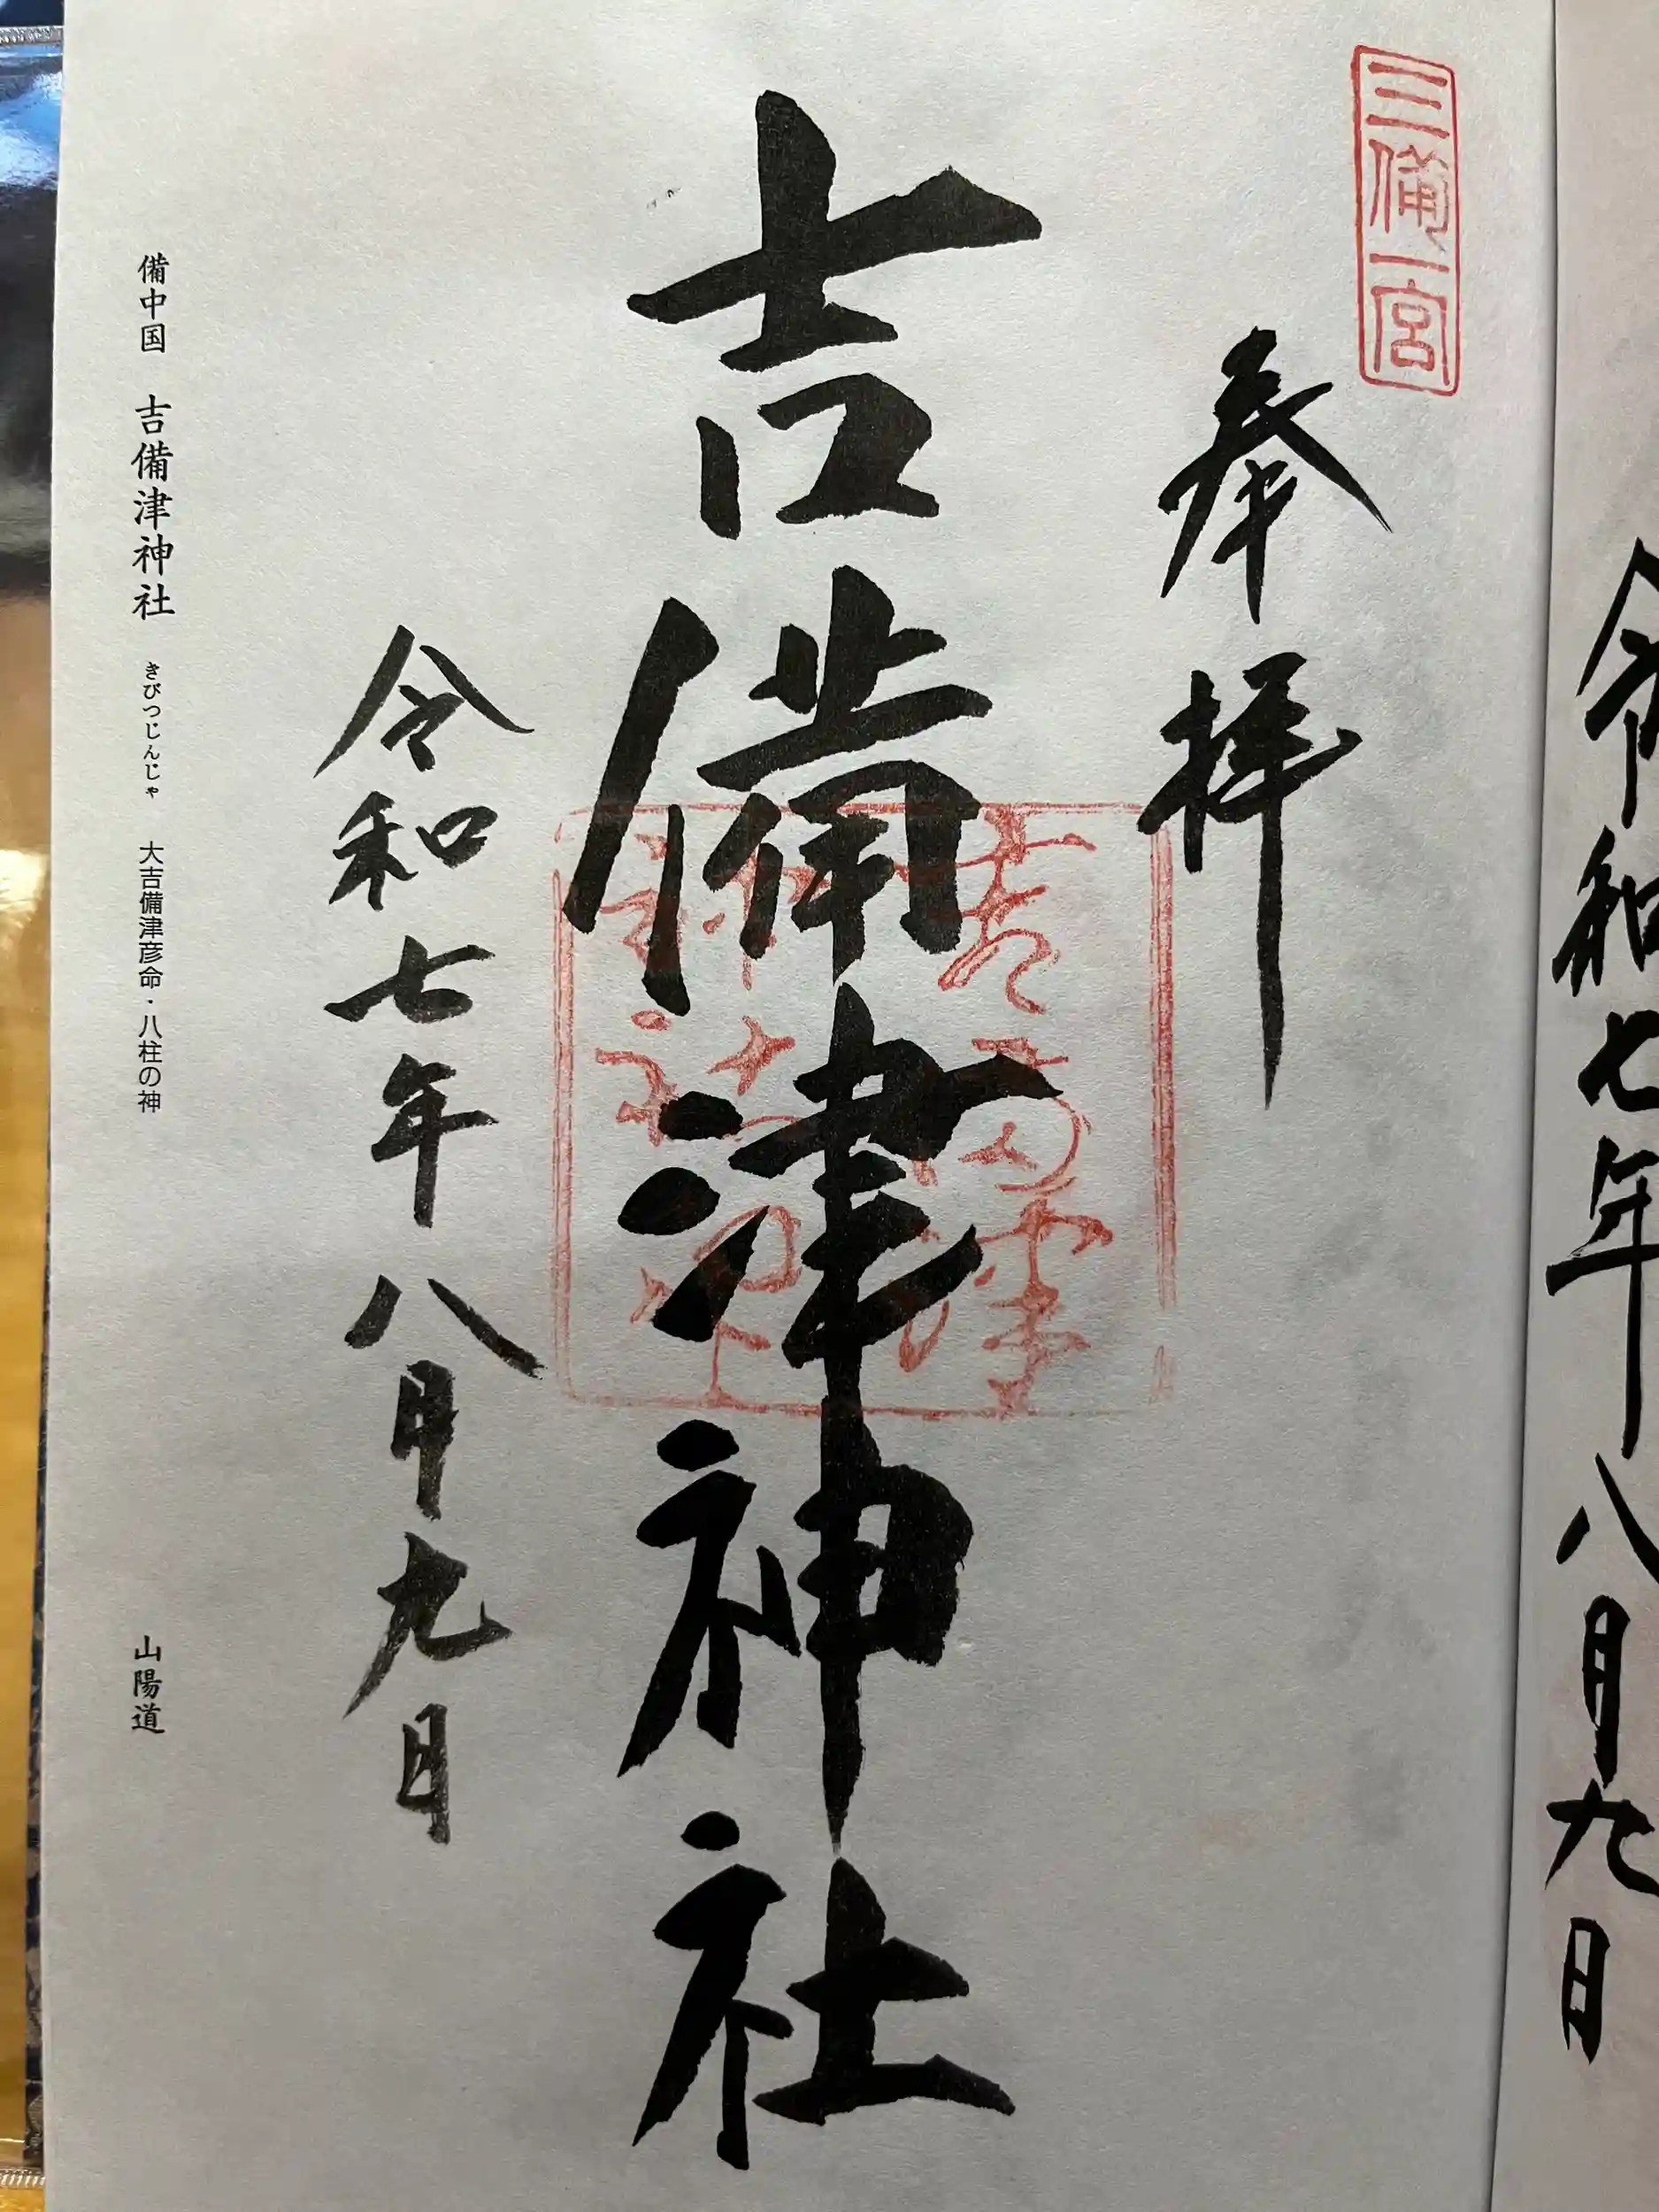 令和七年八月九日
三備一宮
奉拝
吉備津神社
令和七年八月九日
備中国 吉備津神社 きびつじんじゃ 大吉備津彦命・八柱の神 山陽道